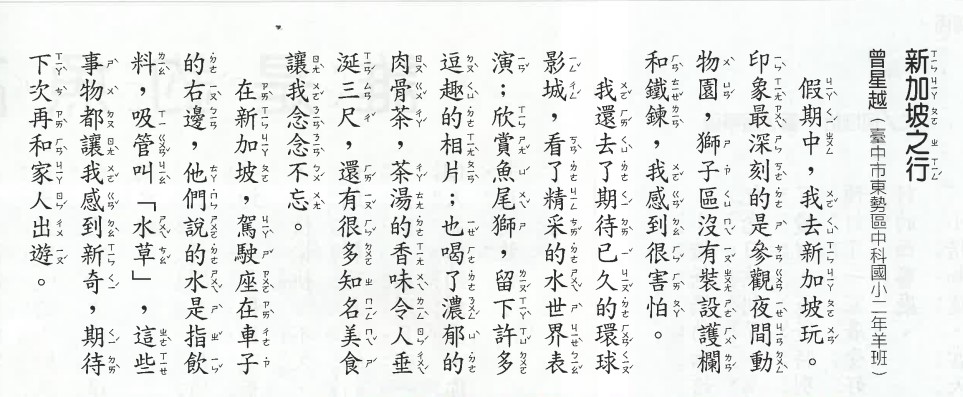 新加坡之行
曾星越（臺中市東勢區中科國小二年羊班）
假期中，我去新加坡玩。
印象最深刻的是參觀夜間動
物園，獅子區沒有裝設護欄
和鐵鍊，我感到很害怕。
我還去了期待已久的環球
影城，看了精采的水世界表
演；欣賞魚尾獅，留下許多
逗趣的相片；也喝了濃郁的
肉骨茶，茶湯的香味令人垂
涎三尺，還有很多知名美食
讓我念念不忘。
在新加坡，駕駛座在車子
的右邊，他們說的水是指飲
料，吸管叫「水草」，這些
事物都讓我感到新奇，期待
下次再和家人出遊。